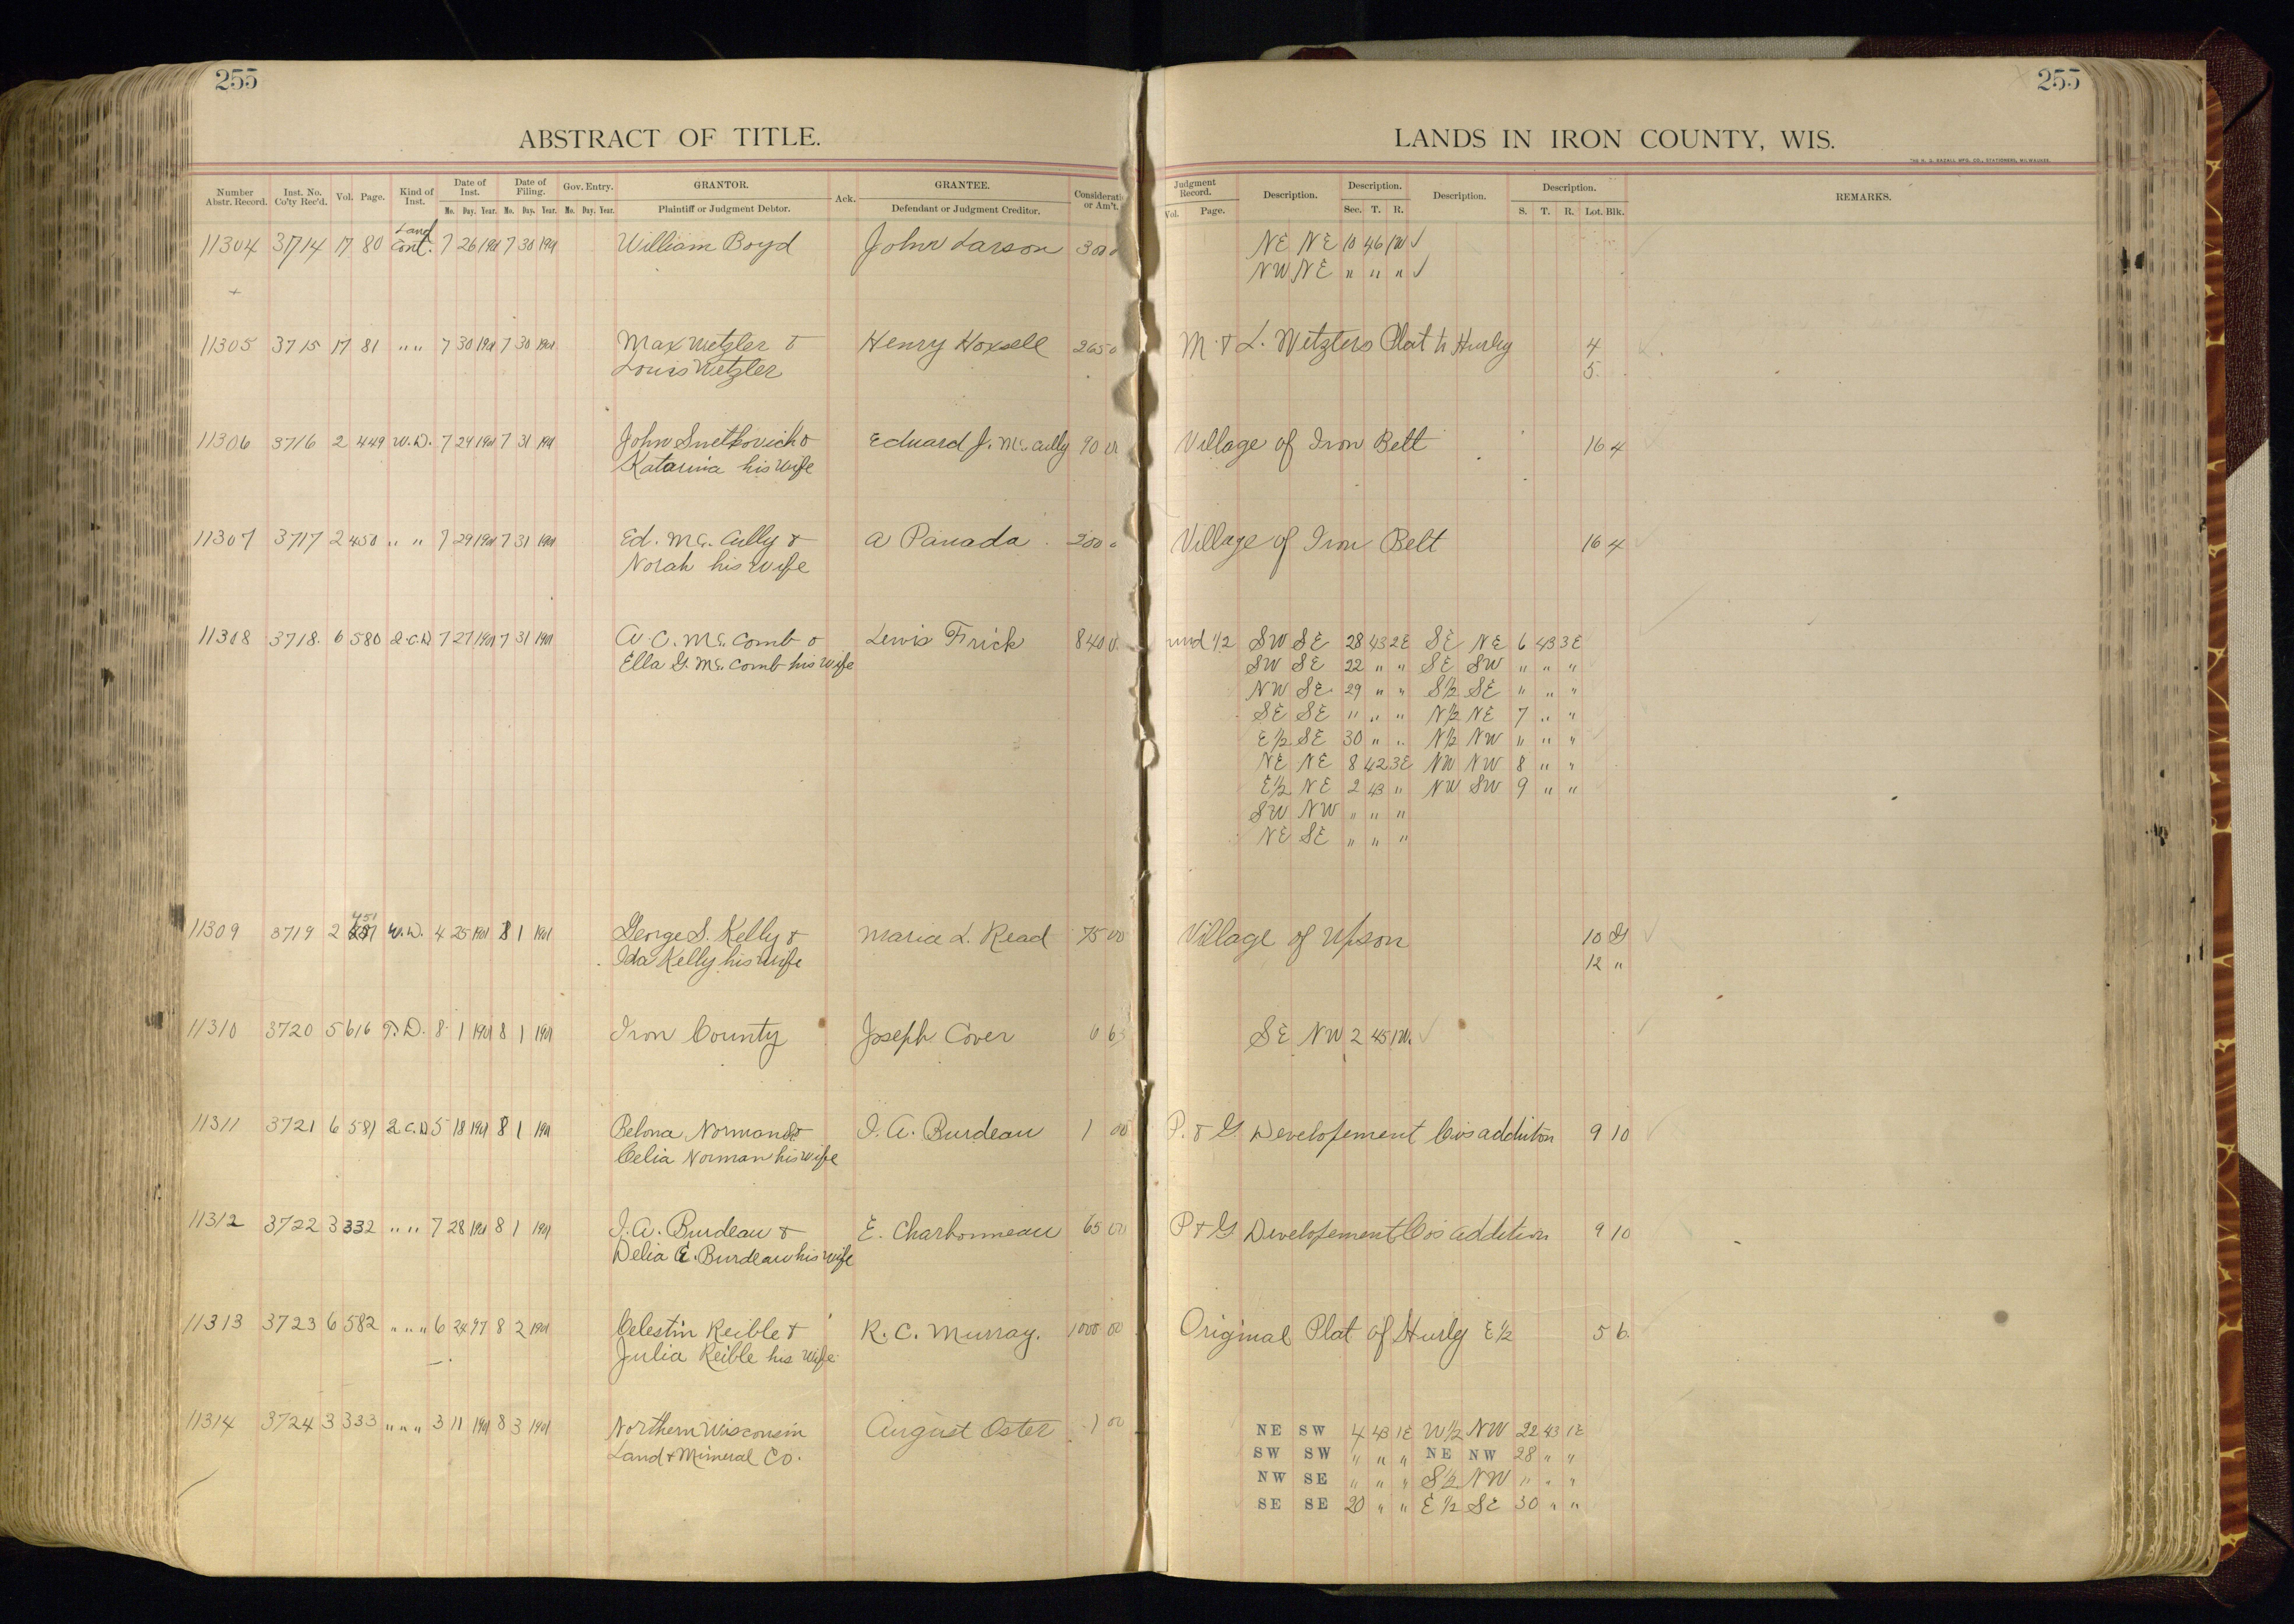 255
ABSTRACT OF TITLE.
Number Abstr. Record. Inst. No. Co'ty Rec'd. Vol. Page. Kind of Inst. Date of Inst. Mo. Day. Year. Date of Filing. Mo. Day. Year. Gov. Entry. Mo. Day. Year. GRANTOR. Plaintiff or Judgment Debtor. Ack. GRANTEE. Defendant or Judgment Creditor. Considerati or Am't.
11304 3714 17 80 Land Cont. 7 26 1901 7 30 1901 William Boyd John Larson 300 0
11305 3715 17 81 " " 7 30 1901 7 30 1901 Max Wetzler & Henry Hoxsell 265 0
Louis Wetzler
11306 3716 2 449 W.D. 7 24 1901 7 31 1901 John Snetkovich & Eduard J. Mc. Cully 90 00
Katarina his wife
11307 3717 2 450 " " 7 29 1901 7 31 1901 Ed. Mc. Cully & A Panada 200 0
Norah his wife
11308 3718. 6 580 Q.C.D. 7 27 1901 7 31 1901 A. C. Mc. Comb & Lewis Frick 840 0
Ella G. Mc. Comb his wife
11309 3719 2 451 W.D. 4 25 1901 8 1 1901 George S. Kelly & Maria L. Read 75 00
Ida Kelly his wife
11310 3720 5 616 T.D. 8 1 1901 8 1 1901 Iron County Joseph Cover 6 63
11311 3721 6 581 Q.C.D. 5 18 1901 8 1 1901 Belona Norman & I. A. Burdeau 1 00
Celia Norman his wife
11312 3722 3 332 " " 7 28 1901 8 1 1901 I. A. Burdeau & E. Charbonneau 65 00
Delia E. Burdeau his wife
11313 3723 6 582 " " " 6 24 97 8 2 1901 Celestin Reible & R. C. Murray. 1000 00
Julia Reible his wife
11314 3724 3 333 " " " 3 11 1901 8 3 1901 Northern Wisconsin August Oster 1 00
Land & Mineral Co.
255
LANDS IN IRON COUNTY, WIS.
THE H. G. RAZALL MFG. CO., STATIONERS, MILWAUKEE.
Judgment Record. Vol. Page. Description. Description. Sec. T. R. Description. Description. S. T. R. Lot. Blk. REMARKS.
NE NE 10 46 1W ✓
NW NE " " " ✓
M. & L. Wetzlers Plat to Hurley 4
5.
Village of Iron Belt 16 4
Village of Iron Belt 16 4
und 1/2 SW SE 28 43 2E SE NE 6 43 3E
SW SE 22 " " SE SW " " "
NW SE 29 " " S½ SE " " "
SE SE " " " N½ NE 7 " "
E½ SE 30 " " N½ NW " " "
NE NE 8 42 3E NW NW 8 " "
E½ NE 2 43 " NW SW 9 " "
SW NW " " "
NE SE " " "
Village of Upson 10 G
12 "
SE NW 2 45 1W. ✓
P. & G Developement Co's addition 9 10
P & G Developement Co's addition 9 10
Original Plat of Hurley E½ 5 6.
NE SW 4 43 1E W½ NW 22 43 1E
SW SW " " " NE NW 28 " "
NW SE " " " S½ NW " " "
SE SE 20 " " E½ SE 30 " "